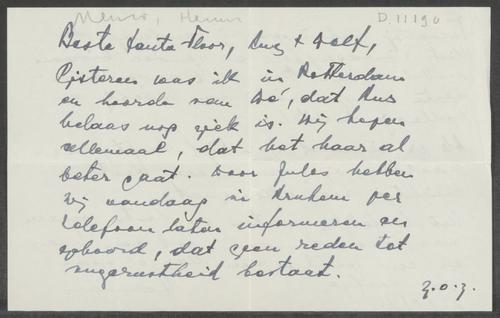 D. 11190
Beste tante Floor, Puz + Dolf,
Gisteren was ik in Rotterdam
en hoorde van Dé, dat Puz
helaas nog ziek is. Wij hopen
allemaal, dat het haar al
beter gaat. Door Jules hebben
wij vandaag in Arnhem per
telefoon laten informeren en
gehoord, dat geen reden tot
ongerustheid bestaat.
z.o.z.